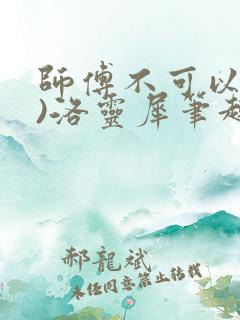 師傅不可以
)洛靈犀筆趣
郝龍斌
未經同意禁止轉載